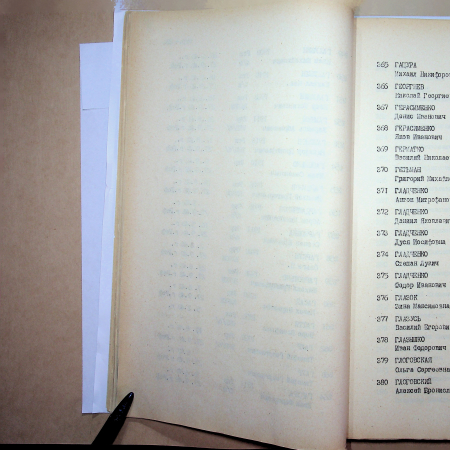 365 ГАЦУРА
Михаил Никифоров
366 ГЕОРГИЕВ
Николай Георгие
367 ГЕРАСИМЕНКО
Денис Иванович
368 ГЕРАСИМЕНКО
Яков Иванович
369
Василий Николае
370 ГЕТМАН
Григорий Михайл
371 ГЛАДЧЕНКО
Антон Митрофано
372 ГЛАДЧЕНКО
Даниил Яковлеви
373 ГЛАДЧЕНКО
Дуся Иосифовна
374 ГЛАДЧЕНКО
Степан Лукич
375 ГЛАДЧЕНКО
Федор Иванович
376 ГЛАЗОК
Зина Максимовна
377 ГЛАБУСЬ
Василий Егорови
378
Иван Федорович
379 ГЛОГОВСКАЯ
Ольга Сергеевна
380 ГЛОГОВСКИЙ
Алексей